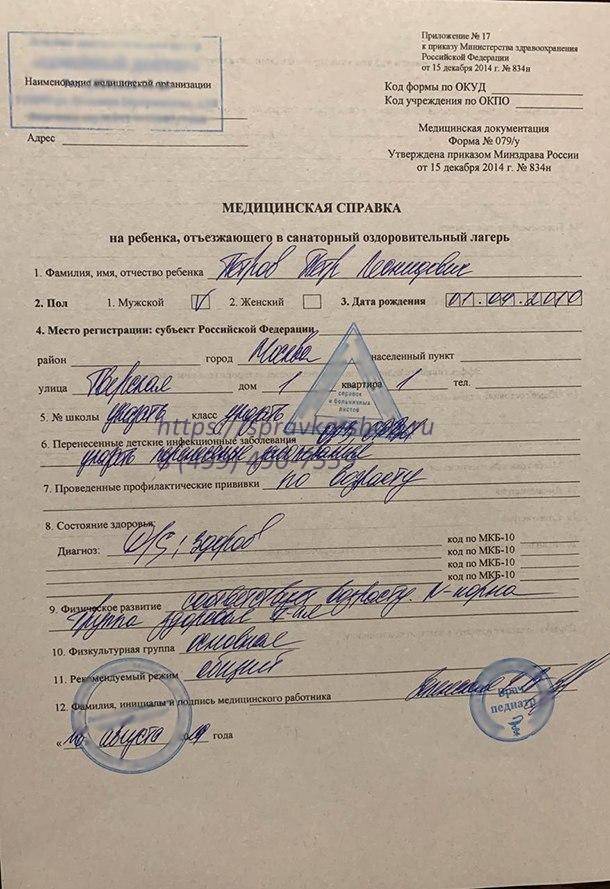 Приложение № 17
к приказу Министерства здравоохранения
Российской Федерации
от 15 декабря 2014 г. № 834н
Наименование медицинской организации
Код формы по ОКУД
Код учреждения по ОКПО
Адрес
Медицинская документация
Форма № 079/у
Утверждена приказом Минздрава России
от 15 декабря 2014 г. № 834н
МЕДИЦИНСКАЯ СПРАВКА
на ребенка, отъезжающего в санаторный оздоровительный лагерь
1. Фамилия, имя, отчество ребенка Петров Петр Леонидович
2. Пол 1. Мужской V 2. Женский 3. Дата рождения 01.09.2010
4. Место регистрации: субъект Российской Федерации
район город Москва населенный пункт
улица Тверская дом 1 квартира 1 тел.
справок
и больничных
листов
5. № школы указать класс указать
6. Перенесенные детские инфекционные заболевания
указать перенесенные заболевания
7. Проведенные профилактические прививки по возрасту
8. Состояние здоровья:
Диагноз: D/S: Здоров код по МКБ-10
код по МКБ-10
код по МКБ-10
код по МКБ-10
9. Физическое развитие соответствует возрасту. N-норма
Группа здоровья
10. Физкультурная группа основная
11. Рекомендуемый режим общий
12. Фамилия, инициалы и подпись медицинского работника
Врач
педиатр
« 10 » августа 2019 года